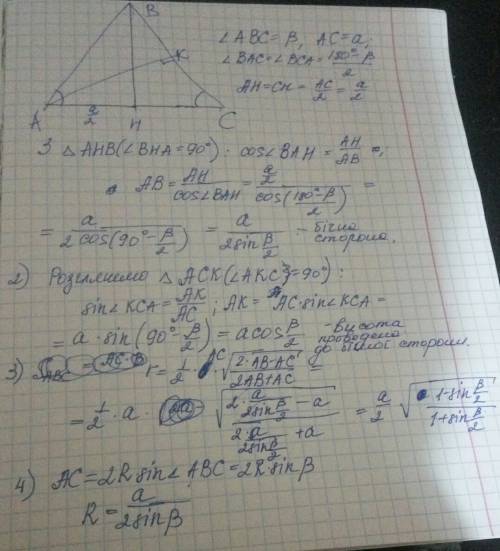 B
K
A
a/2
H
C
∠ABC = β, AC = a;
∠BAC = ∠BCA = (180° − β)/2
AH = CH = AC/2 = a/2
З △ AHB (∠BHA = 90°): cos∠BAH = AH/AB =;
AB = AH/cos∠BAH = (a/2)/cos((180° − β)/2) =
= a/(2cos(90° − β/2)) = a/(2sin β/2) - бічна сторона.
2) Розглянемо △ ACK (∠AKC = 90°):
sin∠KCA = AK/AC; AK = AC·sin∠KCA =
= a · sin(90° − β/2) = a cos β/2 - висота проведена до бічної сторони.
3) r = 1/2 · AC √((2·AB − AC)/(2AB + AC)) =
= 1/2 · a · √((2·a/(2sin β/2) − a)/(2·a/(2sin β/2) + a)) = a/2 √((1 − sin β/2)/(1 + sin β/2))
4) AC = 2R sin∠ABC = 2R sin β
R = a/(2sin β)